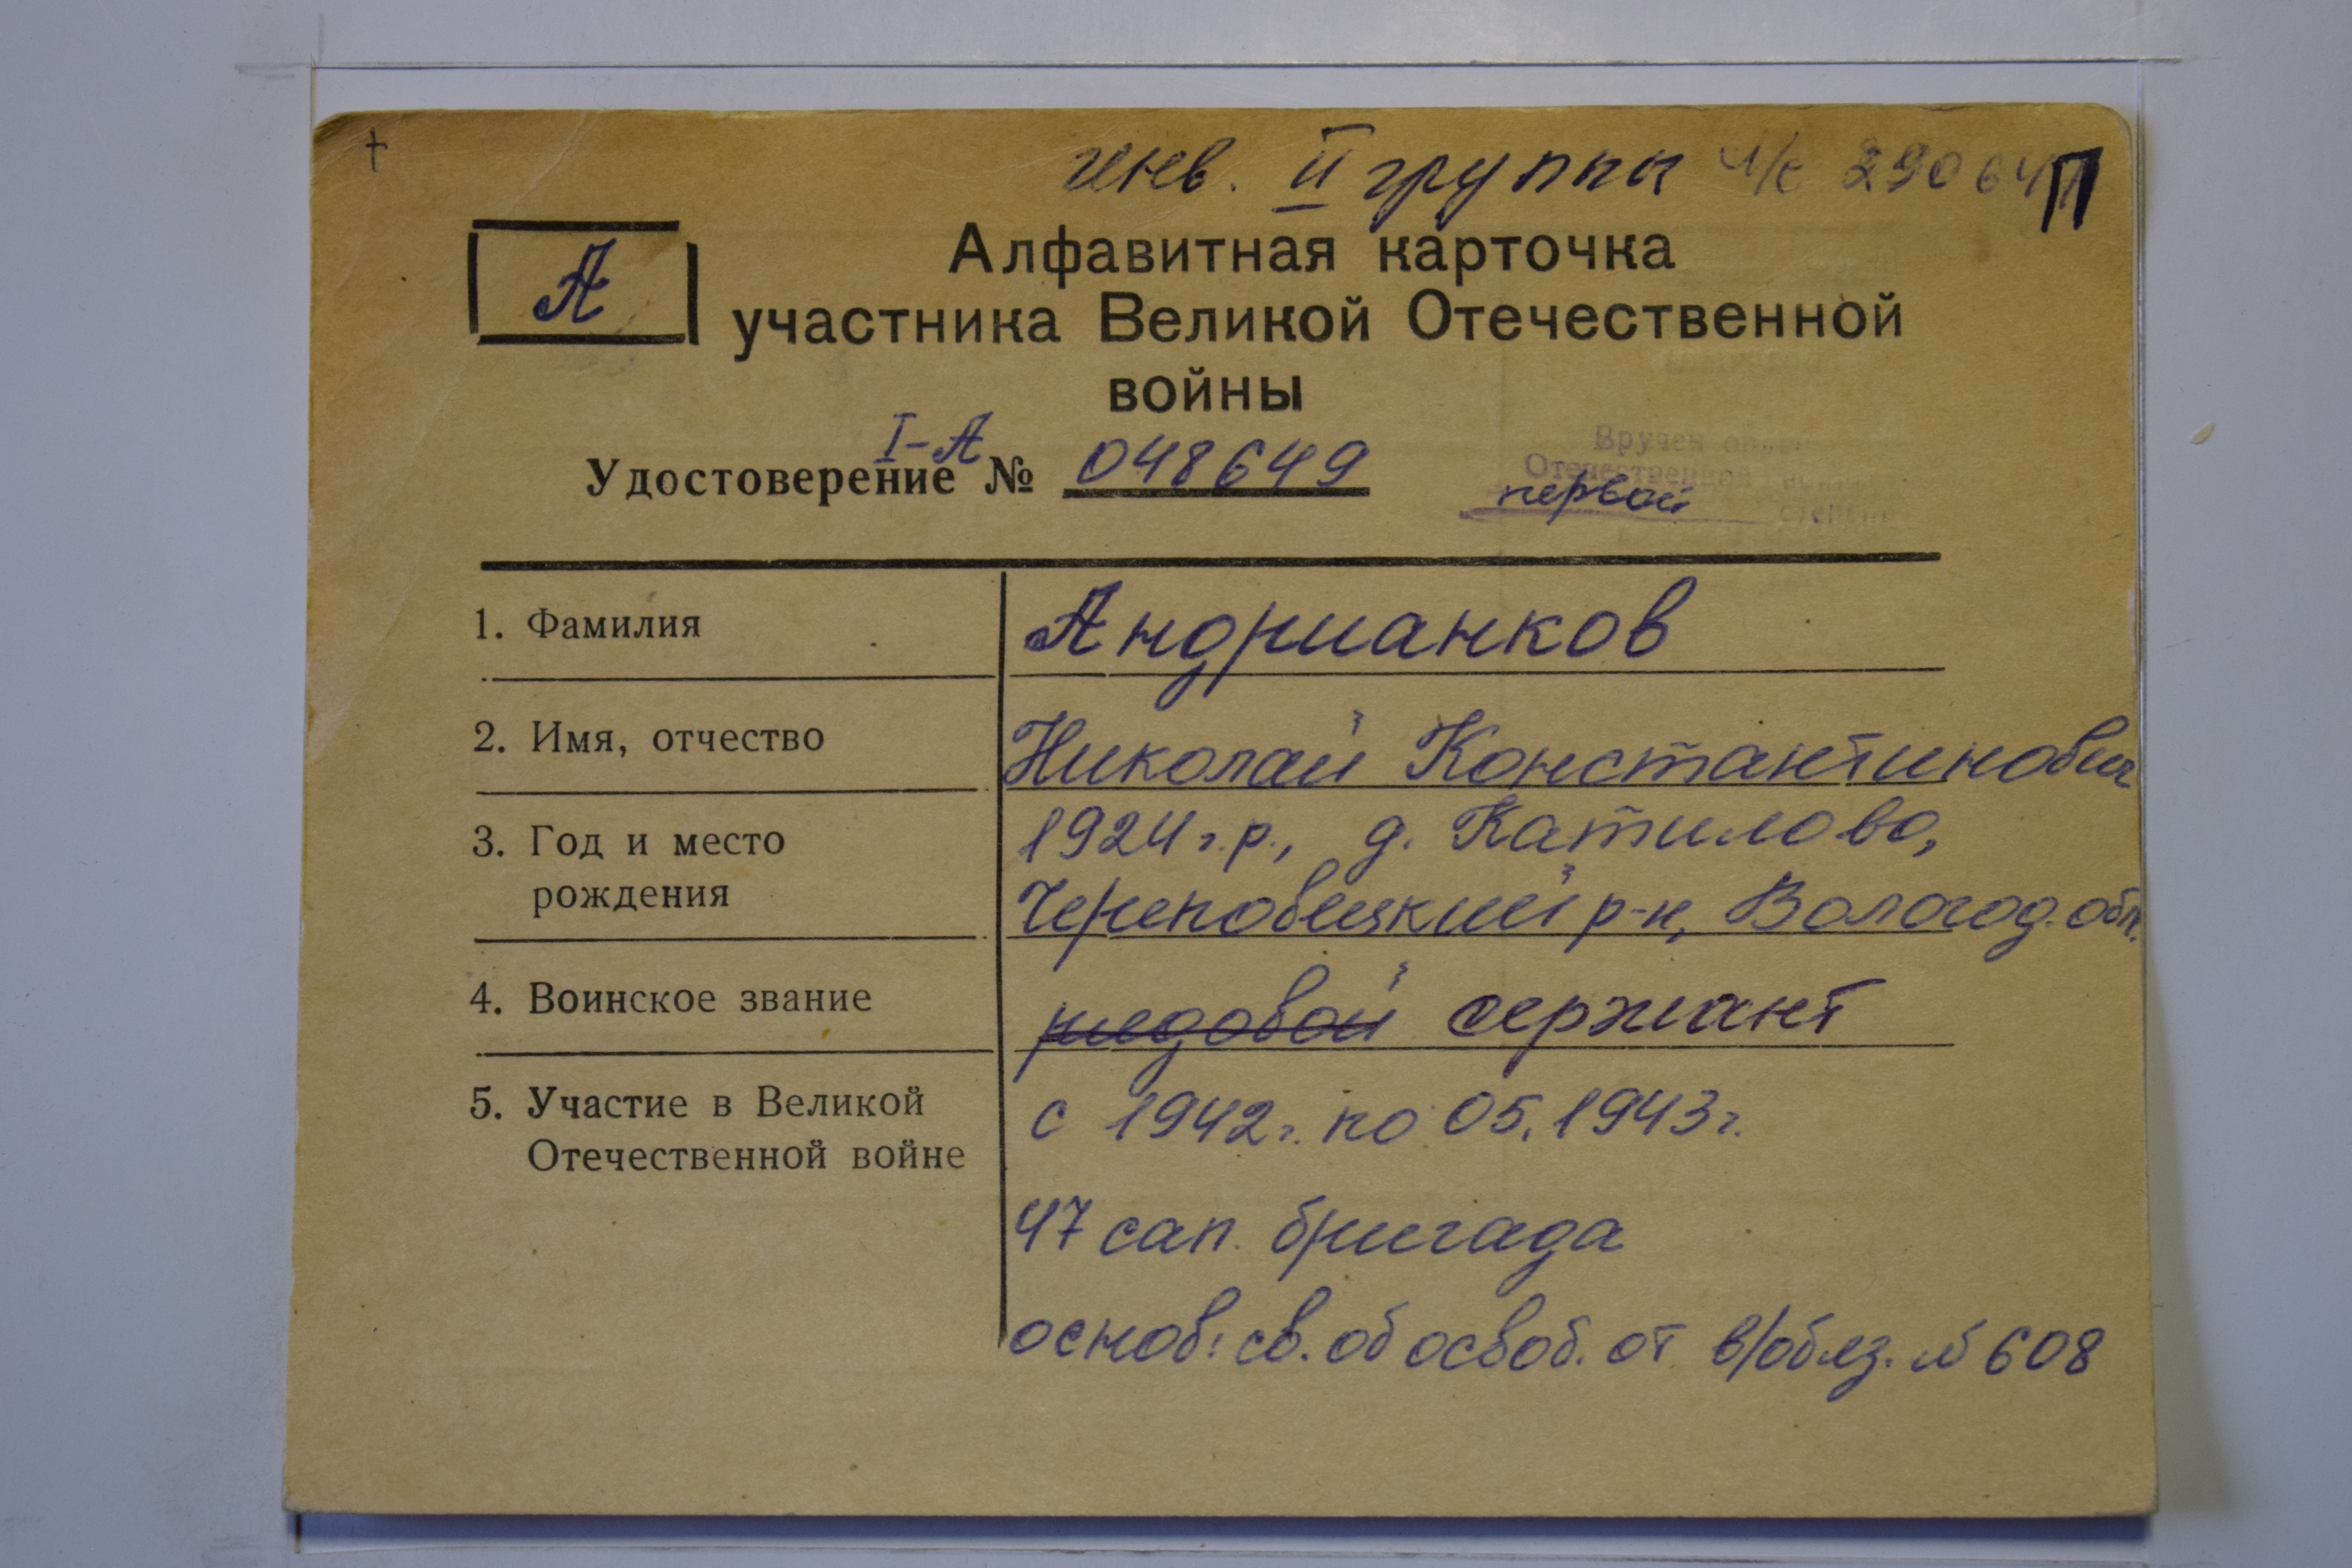 инв. II группы ч/с П
А
Алфавитная карточка
участника Великой Отечественной
войны
I-А
Удостоверение № 048649
Вручен
Отечественной
первой
1. Фамилия Андрианков
2. Имя, отчество Николай Константинович
3. Год и место 1924 г.р., д. Катилово,
рождения Череповецкий р-н, Вологод. обл.
4. Воинское звание рядовой сержант
5. Участие в Великой с 1942 г. по 05.1943 г.
Отечественной войне
47 сап. бригада
основ: св. об освоб. от в/обяз. № 608